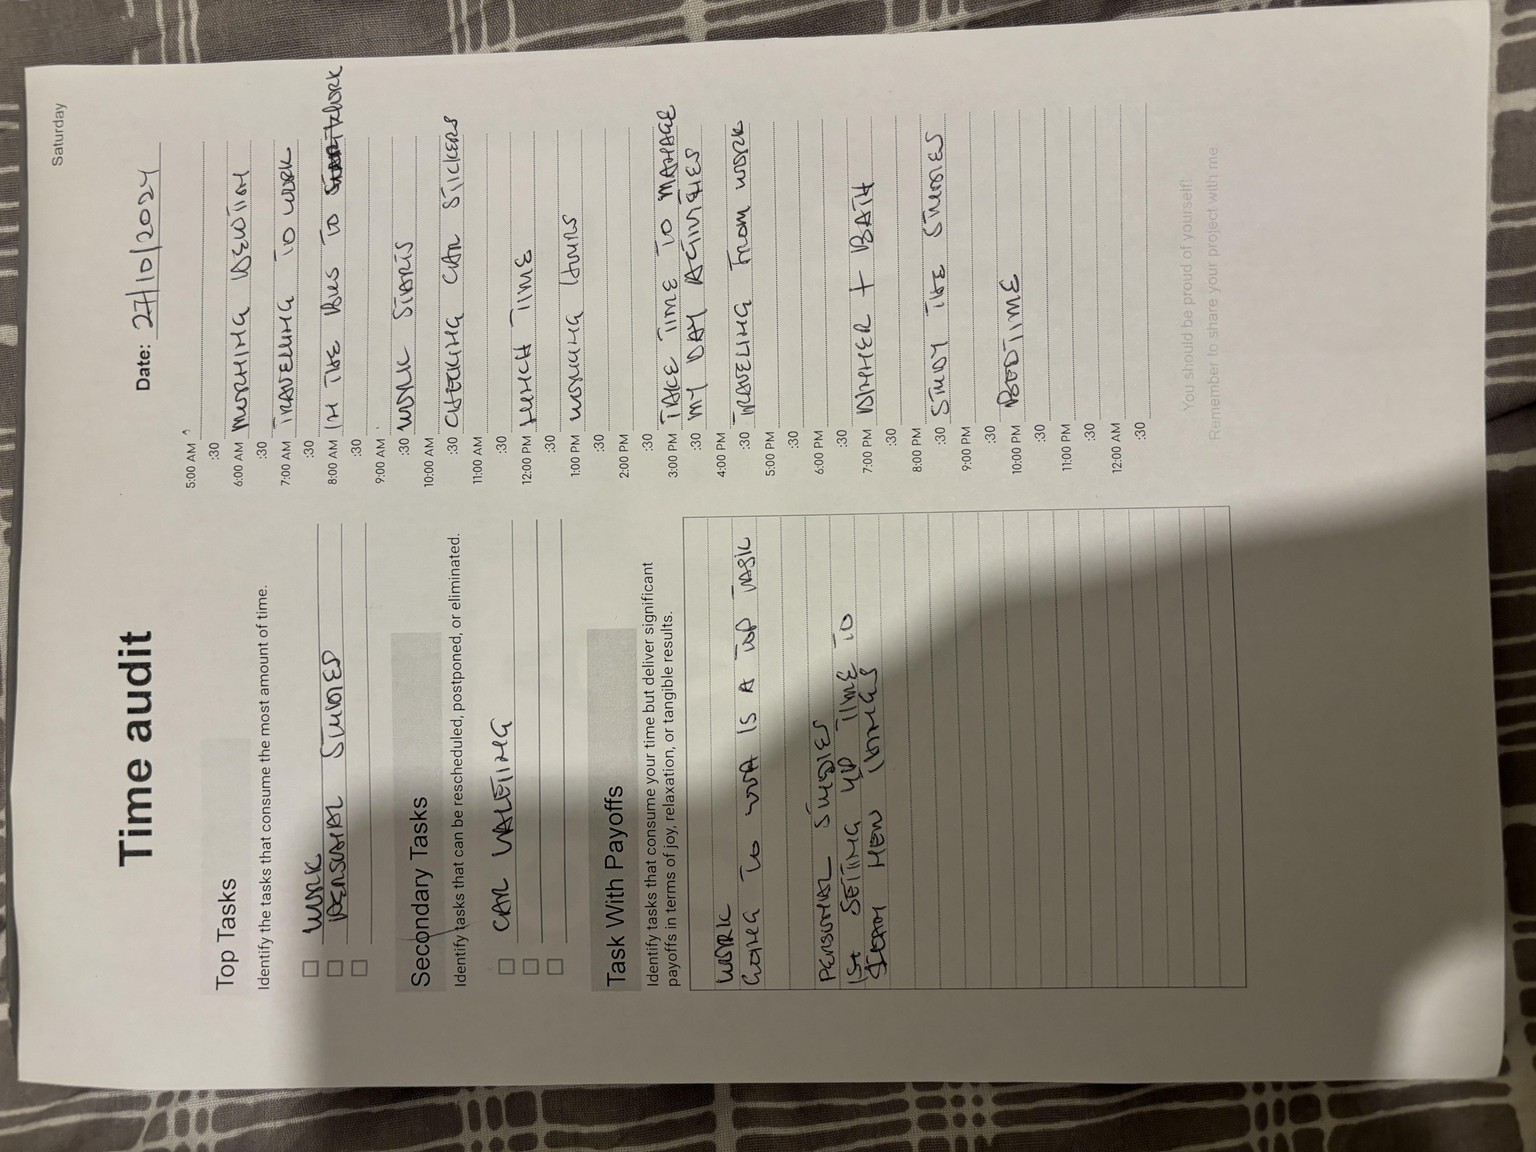 Saturday
Time audit
Date: 27/10/2024
Top Tasks
Identify the tasks that consume the most amount of time.
WORK
PERSONAL STUDIES
Secondary Tasks
Identify tasks that can be rescheduled, postponed, or eliminated.
CAR VALETING
Task With Payoffs
Identify tasks that consume your time but deliver significant
payoffs in terms of joy, relaxation, or tangible results.
WORK
GOING TO WORK IS A TOP TASK
PERSONAL STUDIES
IS SETTING UP TIME TO
LEARN NEW THINGS
5:00 AM
:30
6:00 AM MORNING DEVOTION
:30
7:00 AM TRAVELLING TO WORK
:30
8:00 AM IN THE BUS TO WORK
:30
9:00 AM
:30 WORK STARTS
10:00 AM
:30 CHECKING CAR STICKERS
11:00 AM
:30
12:00 PM LUNCH TIME
:30
1:00 PM WORKING HOURS
:30
2:00 PM
:30
3:00 PM TAKE TIME TO MANAGE
:30 MY DAY ACTIVITIES
4:00 PM
:30 TRAVELING FROM WORK
5:00 PM
:30
6:00 PM
:30
7:00 PM DINNER + BATH
:30
8:00 PM
:30 STUDY THE STUDIES
9:00 PM
:30
10:00 PM BEDTIME
:30
11:00 PM
:30
12:00 AM
:30
You should be proud of yourself!
Remember to share your project with me.